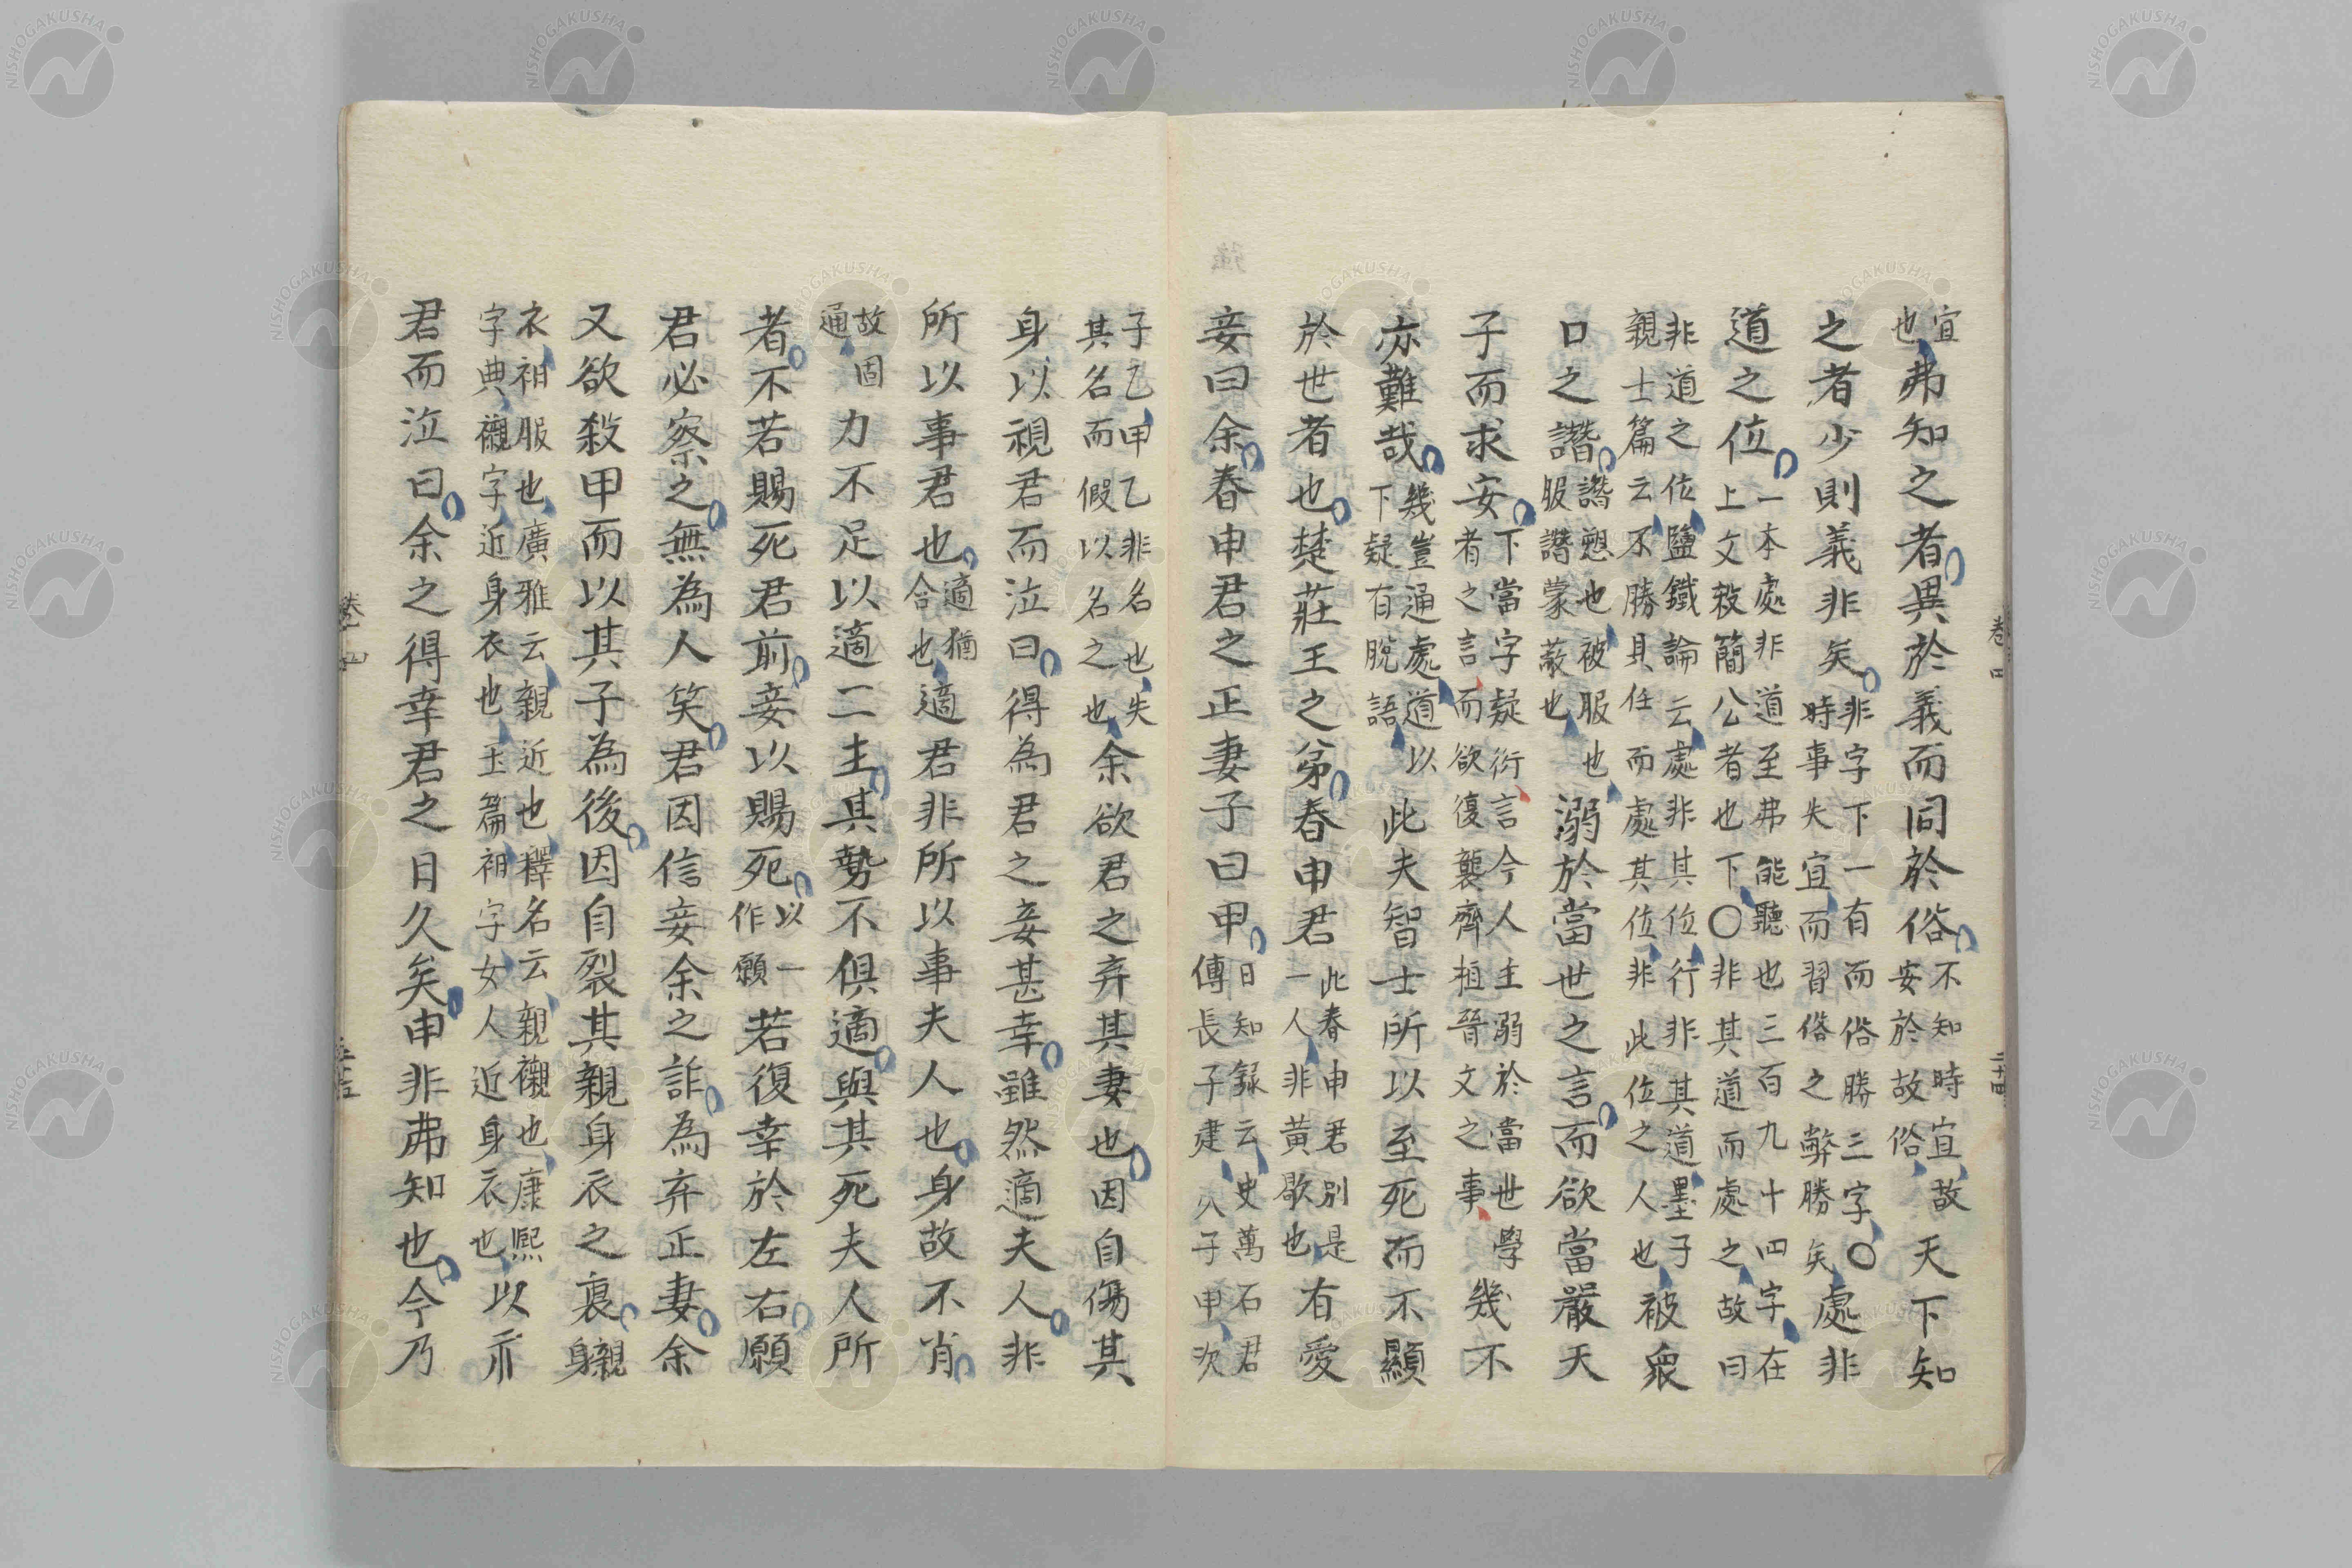 宜也弗知之者異於義而同於俗不知時宜故安於故俗天下知
之者少則義非矣非字下一有而俗勝三字〇時事失宜而習俗之弊勝矣處非
道之位一本處非道至弗能聽也三百九十四字在上文殺簡公者也下〇非其道而處之故曰
非道之位鹽鐵論云處非其位行非其道墨子親士篇云不勝其任而處其位非此位之人也被衆
口之譖譖愬也被服也服譖蒙蔽也溺於當世之言而欲當嚴天
子而求安下當字疑衍言今人主溺於當世學者之言而欲復襲齊桓晉文之事幾不
亦難哉幾豈通處道以下疑有脫語此夫智士所以至死而不顯
於世者也楚莊王之弟春申君此春申君別是一人非黄歇也有愛
妾曰余春申君之正妻子曰甲日知録云史萬石君傳長子建次子甲次
子乙甲乙非名也失其名而假以名之也余欲君之弃其妻也因自傷其
身以視君而泣曰得為君之妾甚幸雖然適夫人非
所以事君也適猶合也適君非所以事夫人也身故不肖
故固通力不足以適二主其勢不俱適與其死夫人所
者不若賜死君前妾以賜死以一作願若復幸於左右願
君必察之無為人笑君因信妾余之詐為弃正妻余
又欲殺甲而以其子為後因自裂其親身衣之裏親身
衣衵服也廣雅云親近也釋名云親襯也康熙字典襯字近身衣也玉篇衵字女人近身衣也以示
君而泣曰余之得幸君之日久矣甲非弗知也今乃
卷四
三十四